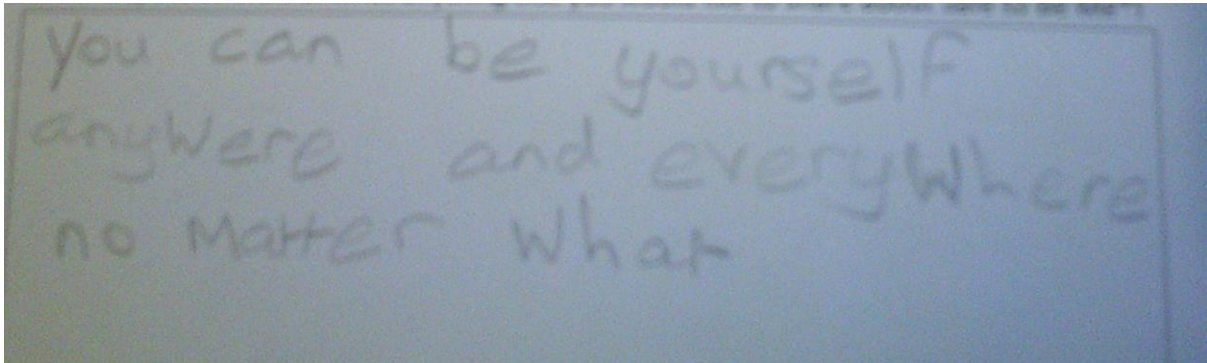 you can be yourself
anyWere and everyWhere
no Matter What